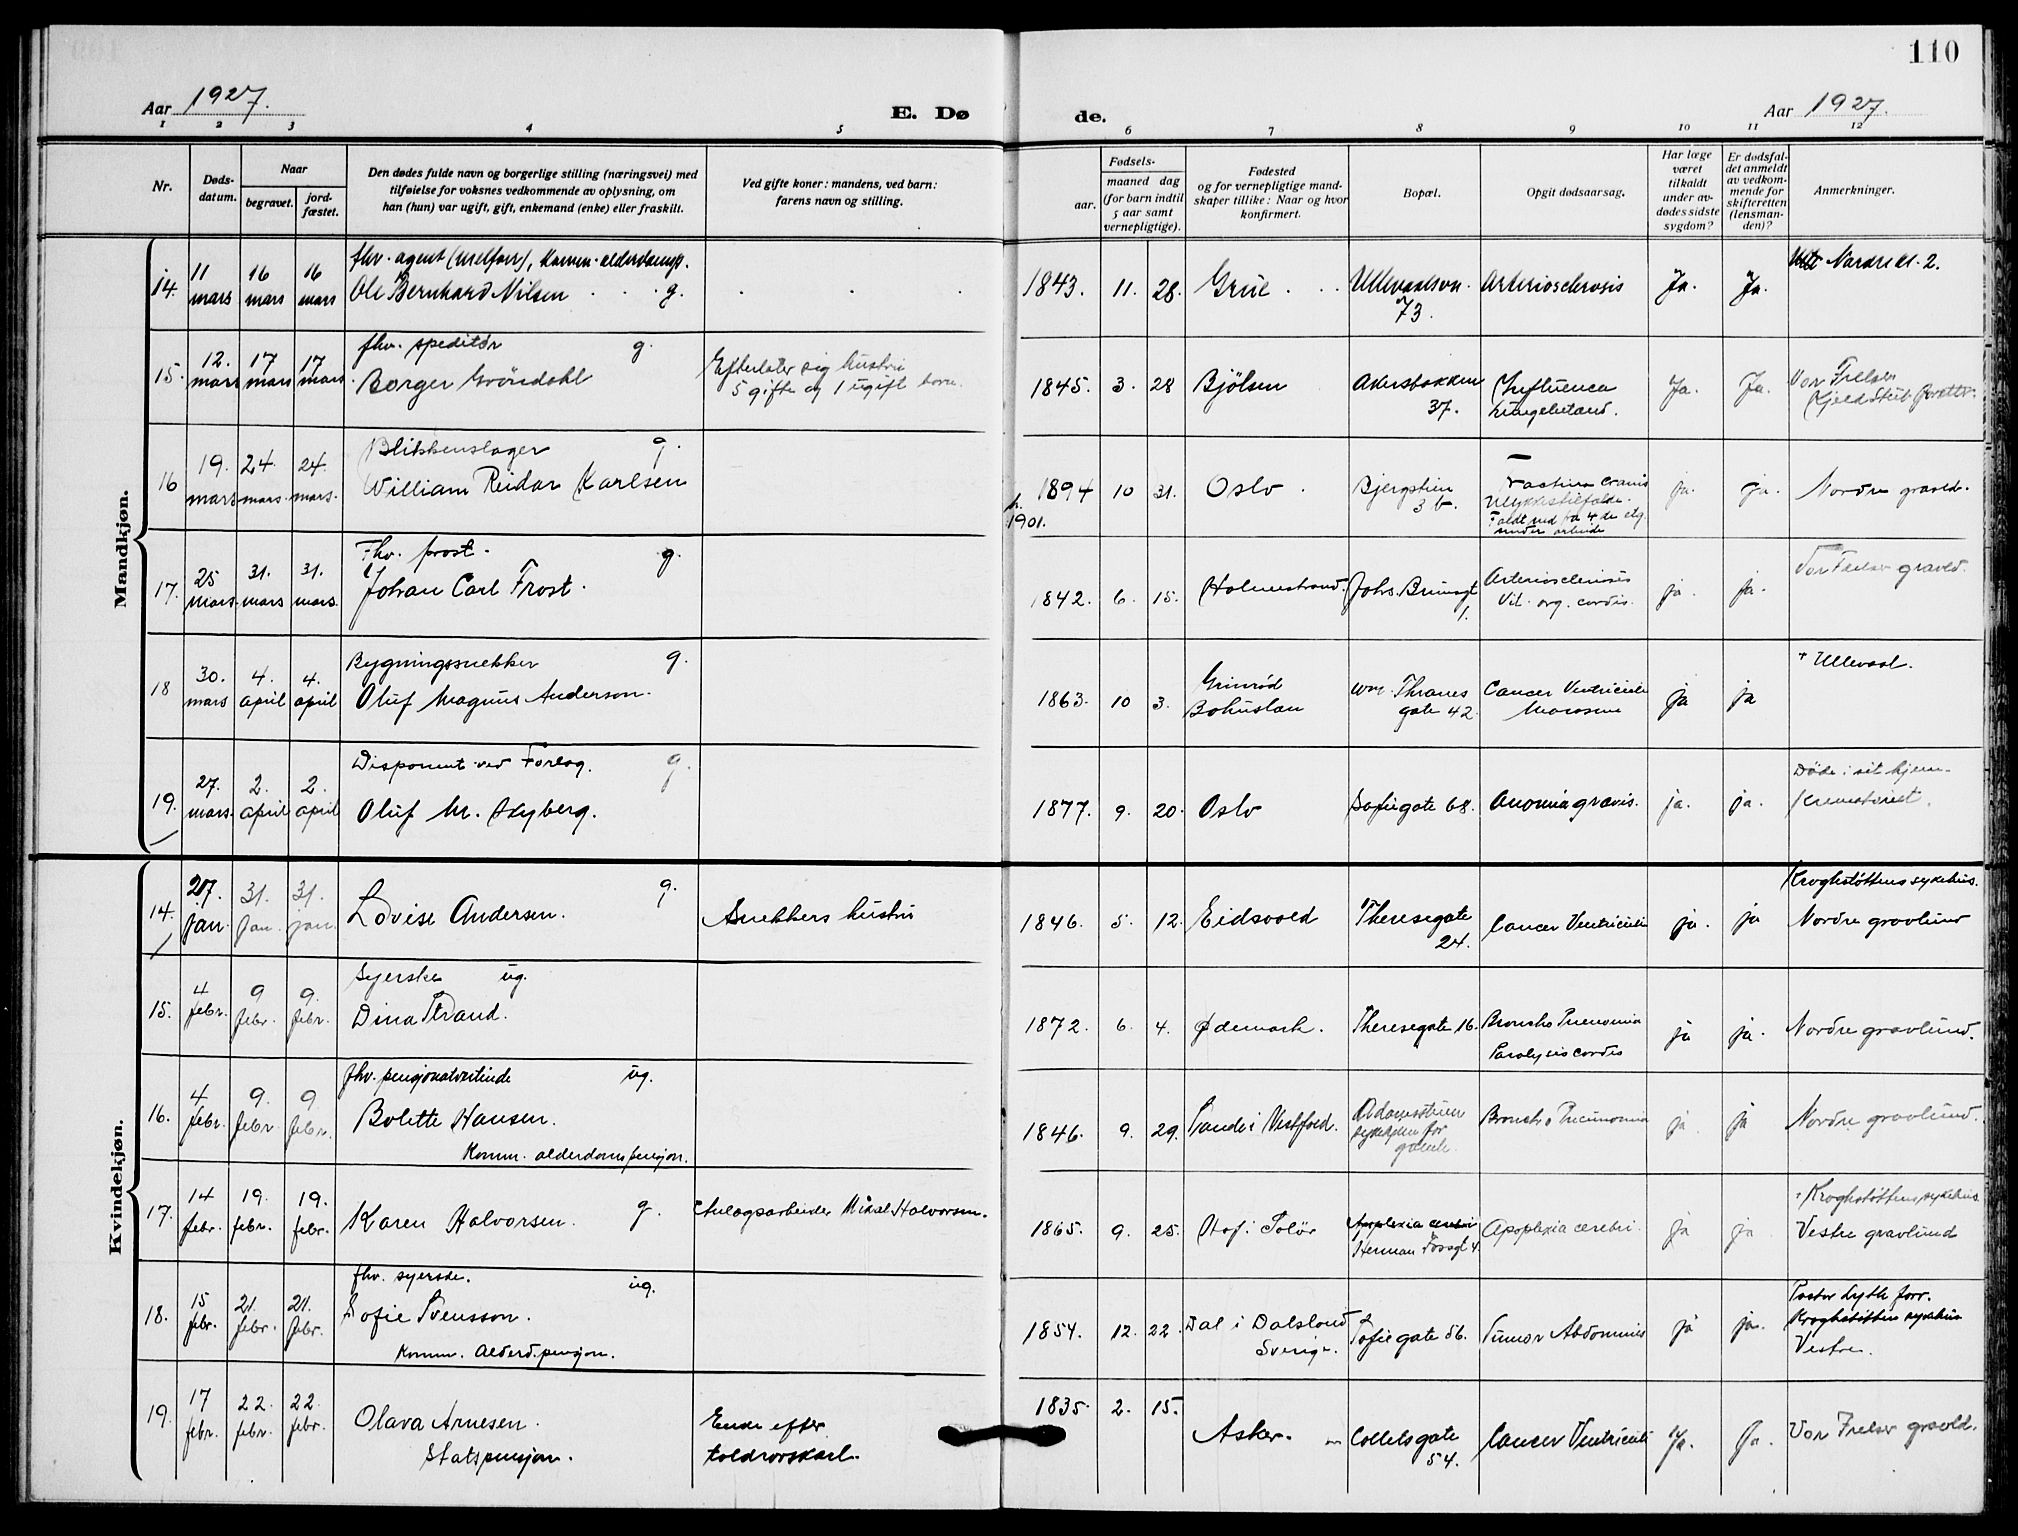 110
Aar 1927.
E. Døde.
Aar 1927.
1 2 3 4 5 6 7 8 9 10 11 12
Nr.
Døds-
datum.
Naar
begravet.
jord-
fæstet.
Den dødes fulde navn og borgerlige stilling (næringsvei) med
tilføielse for voksnes vedkommende av oplysning, om
han (hun) var ugift, gift, enkemand (enke) eller fraskilt.
Ved gifte koner: mandens, ved barn:
farens navn og stilling.
Fødsels-
aar.
maaned dag
(for barn indtil
5 aar samt
vernepligtige).
Fødested
og for vernepligtige mand-
skaper tillike: Naar og hvor
konfirmert.
Bopæl.
Opgit dødsaarsag.
Har læge
været
tilkaldt
under av-
dødes sidste
sygdom?
Er dødsfal-
det anmeldt
av vedkom-
mende for
skifteretten
(lensman-
den)?
Anmerkninger.
Mandkjøn.
14. 11 mars 16 mars 16 mars
fhv. agent
Ole Bernhard Nilsen g.
1843. 11. 28. Grue Ullevaalsvn. 73. Arteriosclerosis Ja. Ja. Nordre kl. 2.
15. 12. mars 17 mars 17 mars
fhv. speditør g.
Borger Gröndahl
Efterlater sig hustru
5 gifte og 1 ugift barn.
1845. 3. 28 Bjölsen Akersbakken 37. Influenca Lungebetænd. Ja. Ja. Vor Frelser
16 19. mars 24. mars. 24. mars.
Blikkenslager g.
William Reidar Karlsen
1894 10 31. Oslo Bjergstien 3 b. Fractura cranii
Ulykkestilfælde.
Faldt ned fra 4de etg.
under arbeide
ja. ja. Nordre gravld.
1901.
17. 25 mars. 31. mars 31. mars.
Fhv. prost. g.
Johan Carl Frost.
1842. 6. 15. Holmestrand. Johs. Brunsgt 1. Arteriosclerosis
Vit. org. cordis. ja. ja. Vor Frelser gravld.
18 30. mars 4. april 4. april
Bygningssnekker g.
Oluf Magnus Anderson.
1863. 10 3. Grinröd
Bohuslan
Thranes
gate 42. Cancer Ventriculi
Marasme ja ja + Ullevaal.
19. 27. mars. 2. april 2. april
Disponent ved Forlag. g.
Oluf M. Hyberg.
1877. 9. 20. Oslo Sofiegate 68. Anæmia gravis. ja. ja. Döde i sit hjem.
Krematoriet.
Kvindekjøn.
14. 27. jan. 31. jan. 31. jan.
Lovise Andersen. g.
Snekkers hustru
1846. 5. 12. Eidsvold Theresegate 24. Cancer Ventriculi ja. ja Kroghstøttens sykehus.
Nordre gravlund
15. 4 febr. 9 febr. 9. febr.
Syerske ug.
Dina Strand.
1872. 6. 4. Ødemark. Theresegate 16. Broncho Pneumonia
Paralysis cordis ja ja. Nordre gravlund.
16. 4 febr. 9. febr. 9 febr.
fhv. pensjonatvertinde ug.
Bolette Hansen.
Komm. alderdomspensjon.
1846. 9. 29. Sande i Vestfold. Adamsstuen
sykehjem for
gamle. Broncho Pneumonia ja ja Nordre gravlund.
17. 14 febr. 19. febr. 19. febr.
Karen Halvorsen. g.
Anlægsarbeider Mikal Halvorsen.
1865. 9. 25. Hof i Solör Apoplexia cerebri
Herman Fossgt 4. Apoplexia cerebri. ja ja + Kroghstøttens sykehus.
Vestre gravlund
18. 15 febr. 21. febr. 21. febr.
fhv. syerske. ug.
Sofie Svensson.
Komm. Alderd.pensjon.
1854. 12. 22. Dal i Dalsland
Sverige. Sofiegate 56. Tumor Abdominis ja ja. Pastor Lytle forr.
Kroghstøttens sykehus
Vestre.
19. 17 febr. 22. febr. 22. febr.
Olava Arnesen.
Statspensjon.
Enke efter
toldrorskarl.
1835. 2. 15. Asker. Colletsgate 54. Cancer Ventriculi Ja. Ja. Vor Frelser gravld.